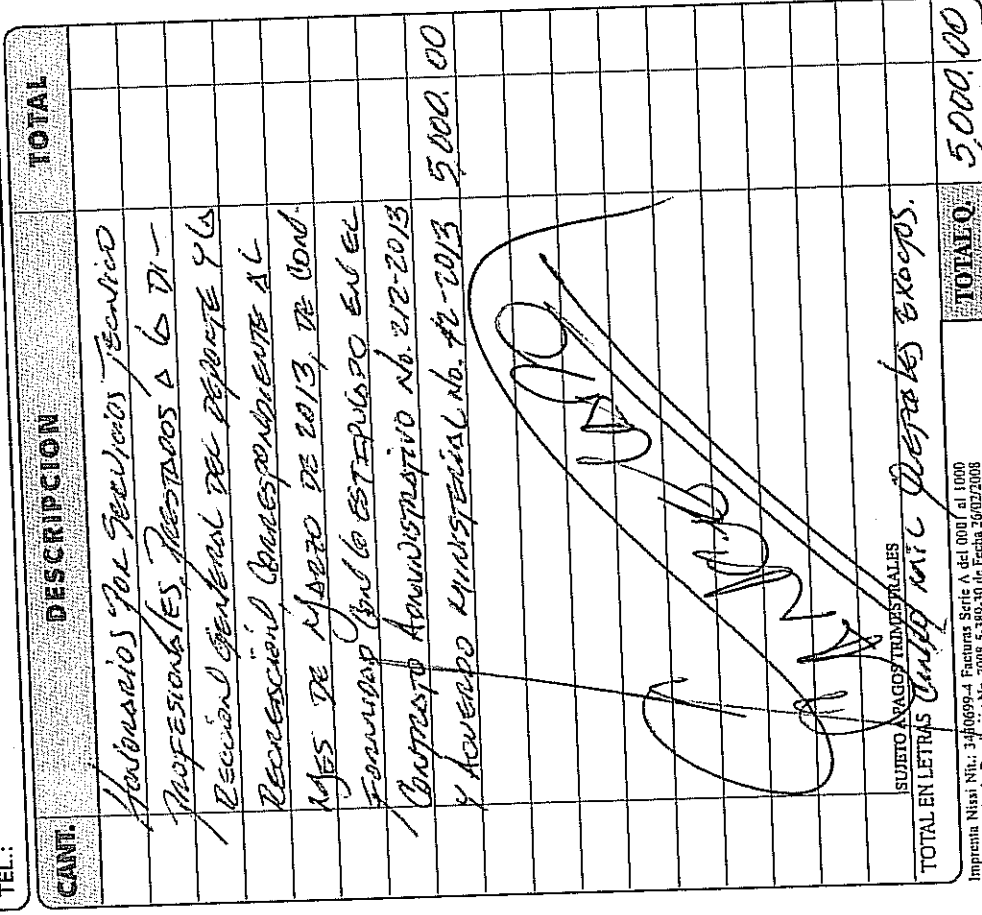 TEL.:
CANT. DESCRIPCION TOTAL
Honorarios Por Servicios Técnico
Profesionales, Prestados a la Di-
rección General del Deporte y la
Recreación Correspondiente al
Mes de Marzo de 2013, de Con-
formidad Con lo estipulado en el
Contrato Administrativo No. 212-2013
y Acuerdo Ministerial No. 42-2013 5,000.00
CANCELADO
SUJETO A PAGOS TRIMESTRALES
TOTAL EN LETRAS Cinco mil Quetzales Exactos.
TOTAL Q. 5,000.00
Imprenta Nissi Nit.: 3480699-4 Facturas Serie A del 0001 al 1000
No. 2008-5-389-30 de Fecha 26/02/2008